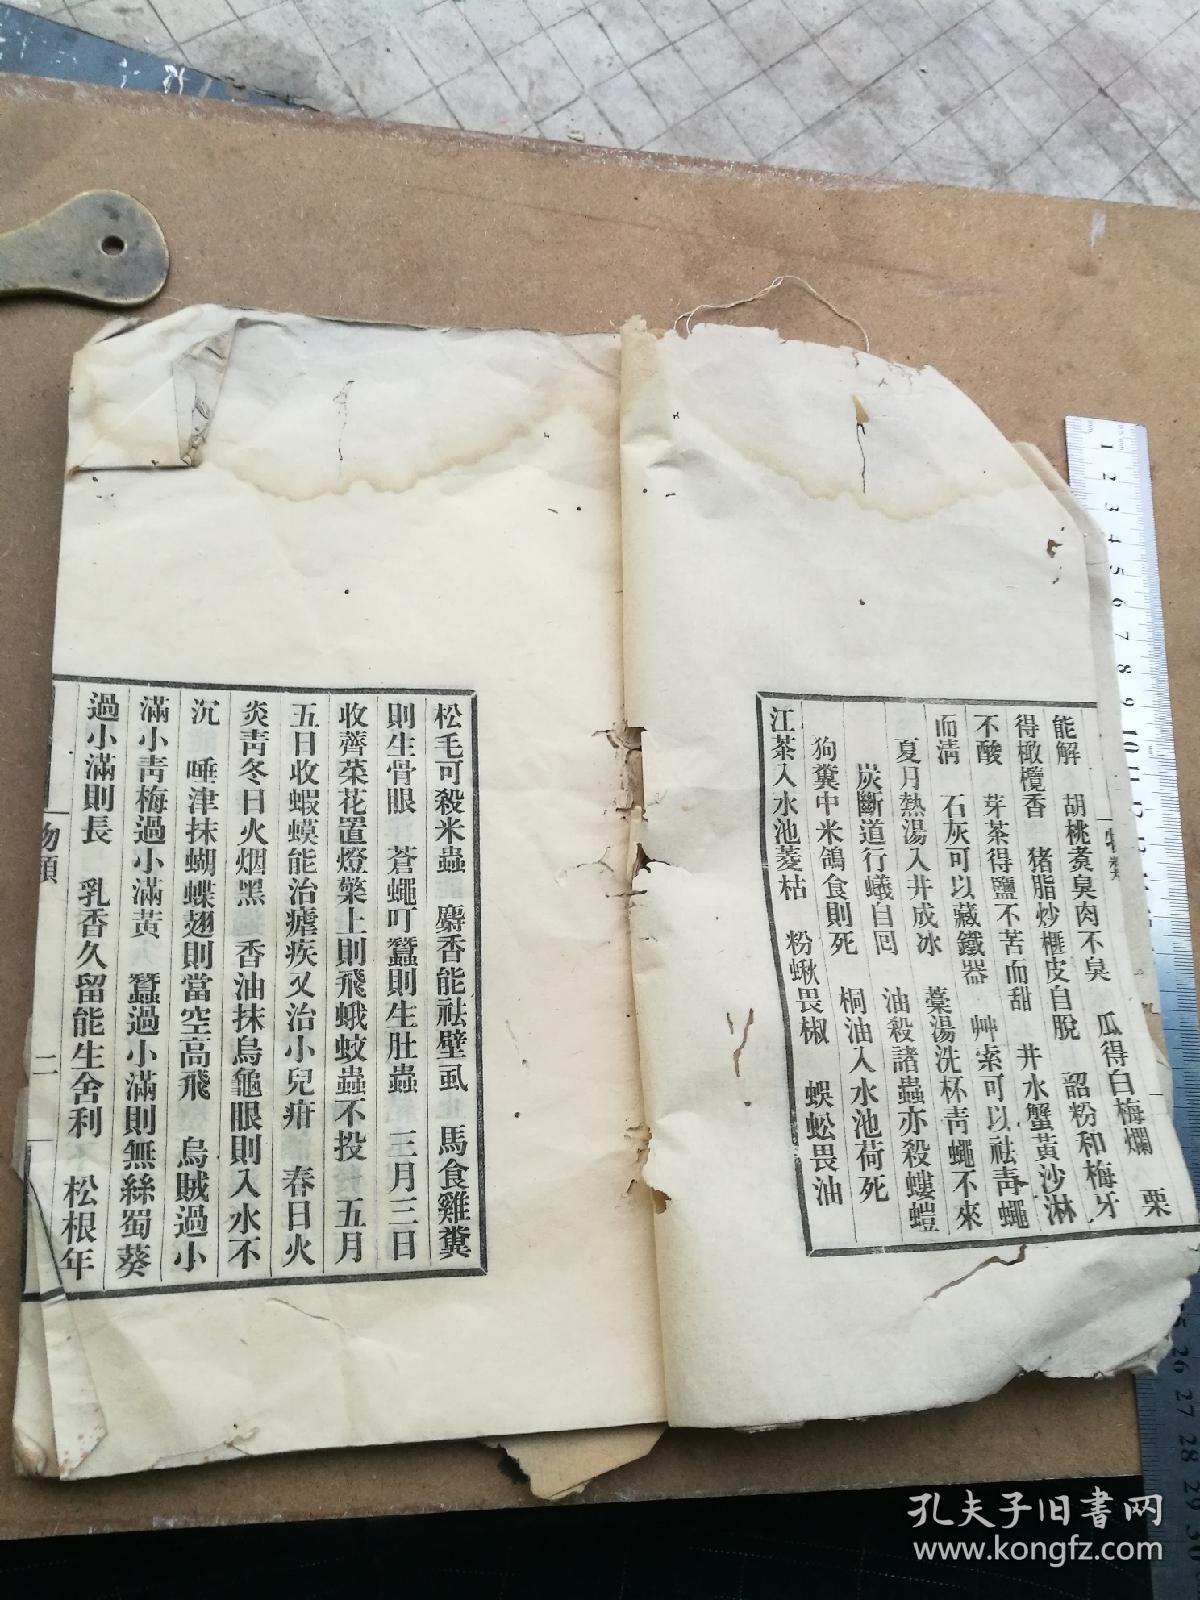 能解　胡桃煑臭肉不臭　瓜得白梅爛　栗
得橄欖香　猪脂炒榧皮自脫　韶粉和梅牙
不酸　芽茶得鹽不苦而甜　井水蟹黃沙淋
而淸　石灰可以藏鐵器　艸索可以祛靑蠅
夏月熱湯入井成冰　藁湯洗杯靑蠅不來
炭斷道行蟻自回　油殺諸蟲亦殺螻螘
狗糞中米鴿食則死　桐油入水池荷死
江茶入水池菱枯　粉蜹畏椒　蜈蚣畏油
松毛可殺米蟲　麝香能祛壁虱　馬食雞糞
則生骨眼　蒼蠅叮蠶則生肚蟲　三月三日
收薺菜花置燈檠上則飛蛾蚊蟲不投　五月
五日收蝦蟆能治瘧疾又治小兒疳　春日火
炎靑冬日火烟黑　香油抹烏龜眼則入水不
沉　唾津抹蝴蝶翅則當空高飛　烏賊過小
滿小靑梅過小滿黃　蠶過小滿則無絲蜀葵
過小滿則長　乳香久留能生舍利　松根年
物類　二
孔夫子旧書网
www.kongfz.com